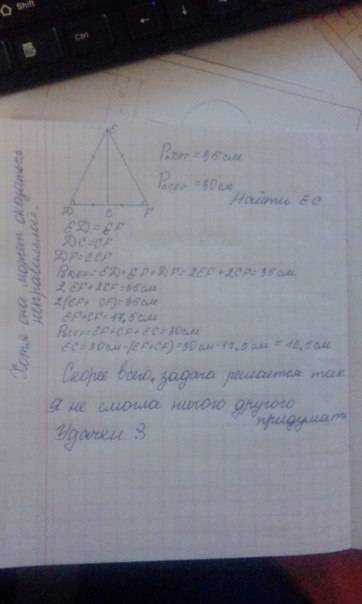 E
D
C
F
P DEF = 35 см
P CEF = 30 см
Найти EC
ED = EF
DC = CF
DF = 2CF
P DEF = ED + EF + DF = 2EF + 2CF = 35 см
2EF + 2CF = 35 см
2(EF + CF) = 35 см
EF + CF = 17,5 см
P CEF = EF + CF + EC = 30 см
EC = 30 см - (EF + CF) = 30 см - 17,5 см = 12,5 см
Скорее всего, задача решается так
Я не смогла ничего другого
придумать
Удачки З
Хотя она может оказаться
неправильной.
Shift
Ctrl